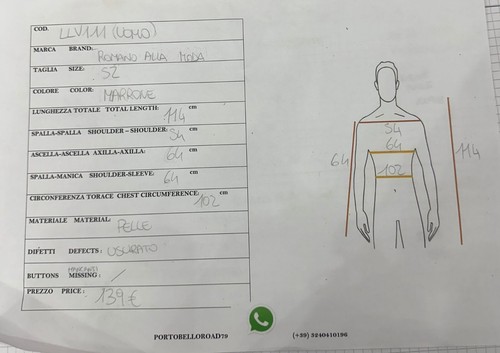 COD. LLV111 (UOMO)
MARCA BRAND: ROMANO ALLA MODA
TAGLIA SIZE: 52
COLORE COLOR: MARRONE
LUNGHEZZA TOTALE TOTAL LENGTH: 114 cm
SPALLA-SPALLA SHOULDER – SHOULDER: 54 cm
ASCELLA-ASCELLA AXILLA-AXILLA: 64 cm
SPALLA-MANICA SHOULDER-SLEEVE: 64 cm
CIRCONFERENZA TORACE CHEST CIRCUMFERENCE: 102 cm
MATERIALE MATERIAL: PELLE
DIFETTI DEFECTS: USURATO
MANCANTI
BUTTONS MISSING: /
PREZZO PRICE: 139€
54
64
64
102
114
PORTOBELLOROAD79
(+39) 3240410196